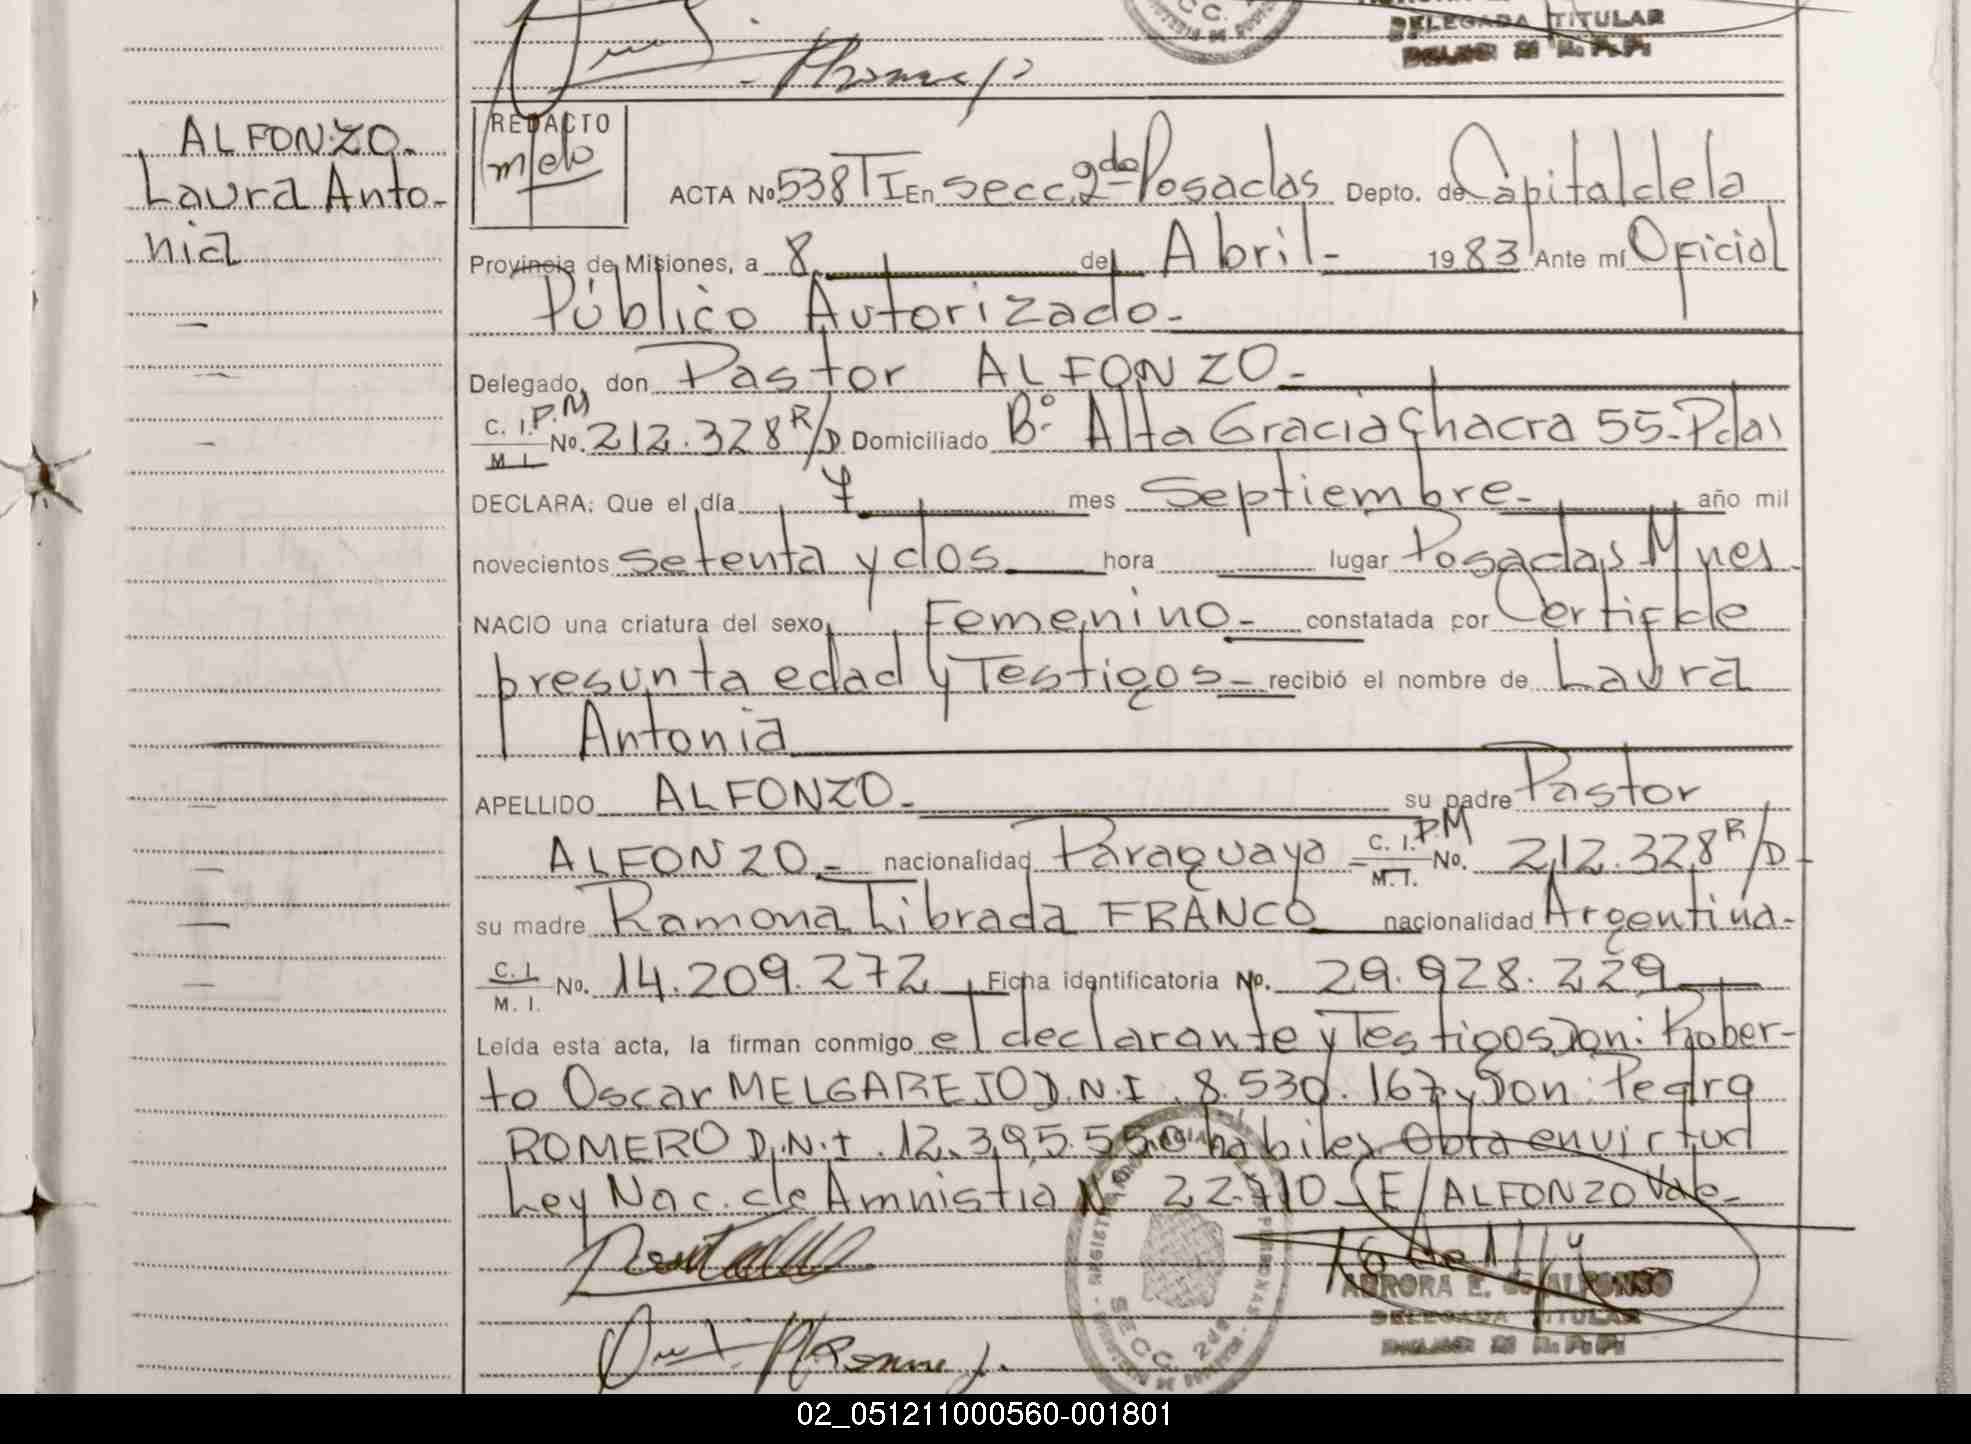 DELEGADA TITULAR
ALFONZO.
Laura Anto-
nia
REDACTO
melo
ACTA Nº 538 TI En Secc. 2da Posadas Depto. de Capital de la
Provincia de Misiones, a 8 de Abril - 19 83 Ante mí Oficial
Público Autorizado.-
Delegado, don Pastor ALFONZO.-
C. I. P.M
M. I. Nº. 212.328 R/D Domiciliado Bº. Alta Gracia Chacra 55- Pdas
DECLARA: Que el día 7 mes Septiembre- año mil
novecientos setenta y dos hora lugar Posadas Mnes.
NACIO una criatura del sexo Femenino- constatada por Certif de
presunta edad y Testigos- recibió el nombre de Laura
Antonia
APELLIDO ALFONZO.- su padre Pastor
ALFONZO.- nacionalidad Paraguaya C. I. P.M
M. I. Nº. 212.328 R/D
su madre Ramona Librada FRANCO nacionalidad Argentina-
C. I.
M. I. Nº. 14.209.272 Ficha identificatoria Nº. 29.928.229
Leída esta acta, la firman conmigo el declarante y Testigos Don: Rober-
to Oscar MELGAREJO D.N.I. 8.530.167 y Don: Pedro
ROMERO D.N.I. 12.395.550 habiles Obra en virtud
Ley Nac. de Amnistia Nº 22.710 - S E/ ALFONZO Vale-
AURORA E. G. ALFONSO
DELEGADA TITULAR
SECC. 2da
02_051211000560-001801